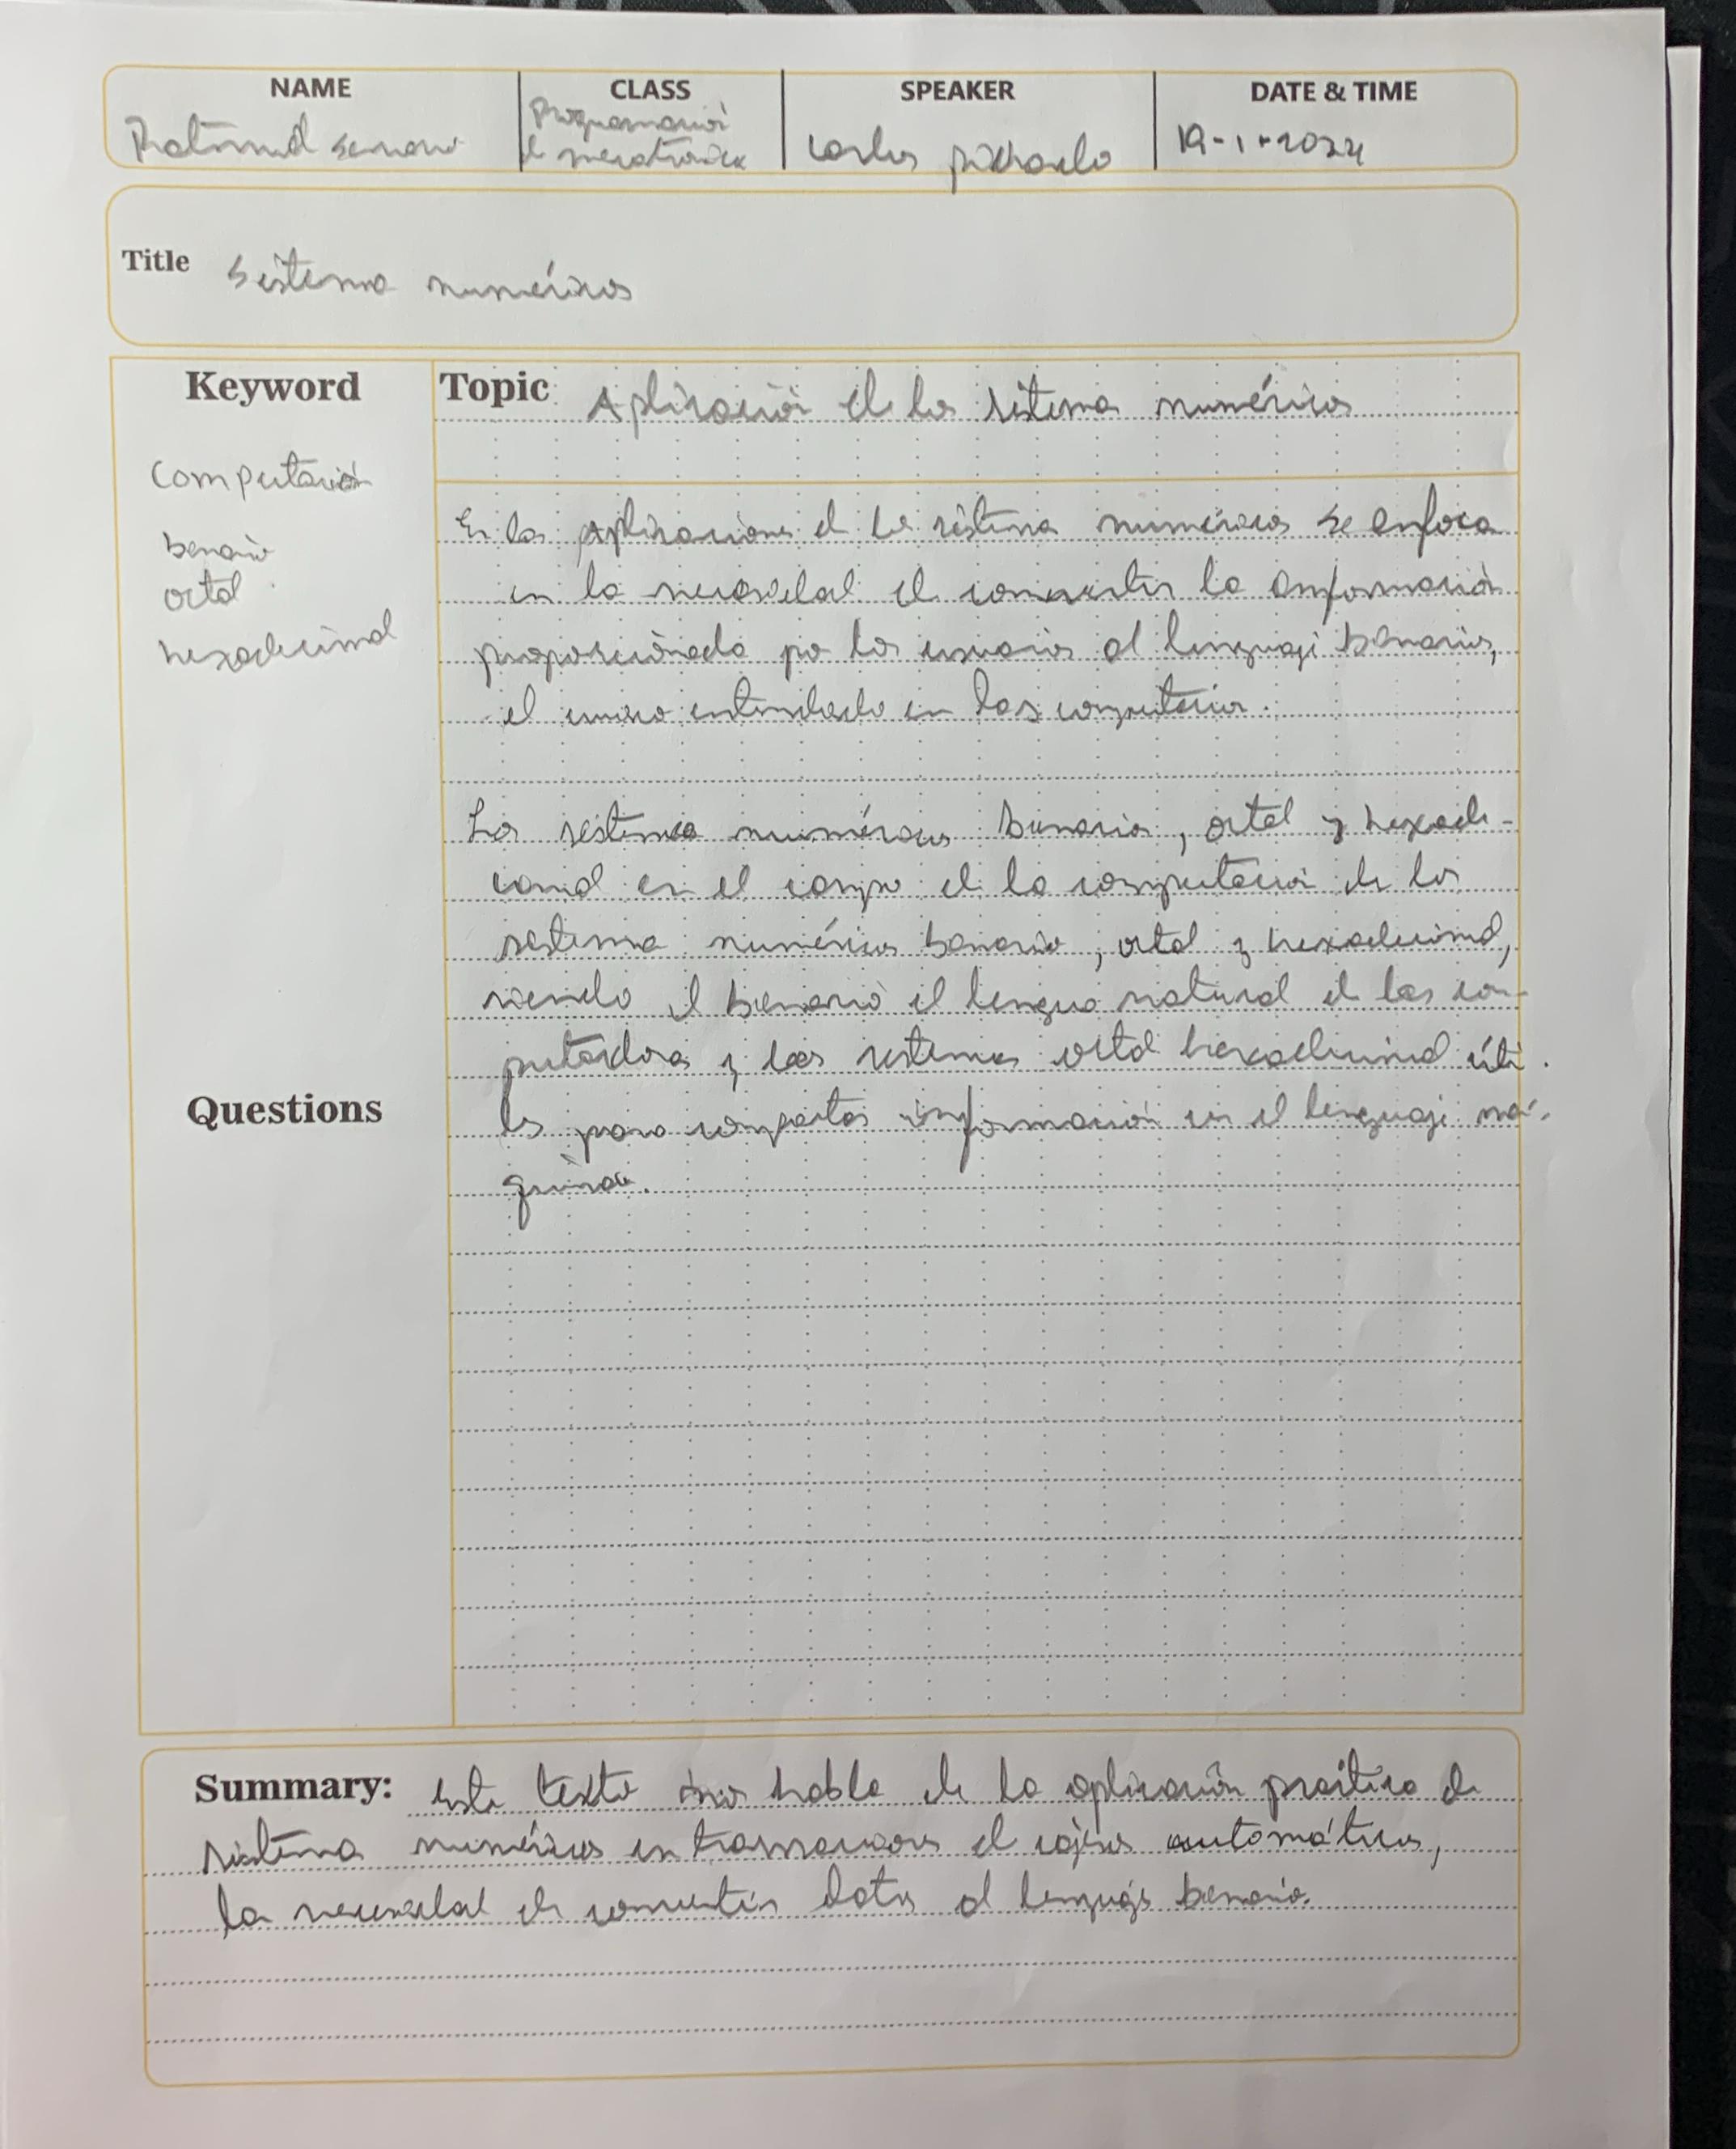 NAME CLASS SPEAKER DATE & TIME
Programación
de mecatronica
Carlos 19-1-2024
Title Sistema numéricos
Keyword Topic Aplicación de los sistema numéricos
Computación
binario
octal
hexadecimal
En las Aplicaciones de los sistema numéricos se enfoca
en la necesidad de convertir la información
proporcionada por los usuarios al lenguaje binarios,
el unico entendido en las
Los sistemas numéricos binario, octal y hexade-
cimal en el campo de la computación de los
sistema numéricos binario, octal y hexadecimal,
siendo el binario el lengua natural de las com-
putadoras y los sistemas octal hexadecimal úti-
les para compartir información en el lenguaje má-
quina.
Questions
Summary: Este texto nos habla de la aplicación práctica de
sistema numéricos en transacciones de cajeros automáticos,
la necesidad de convertir datos al lenguaje binario.